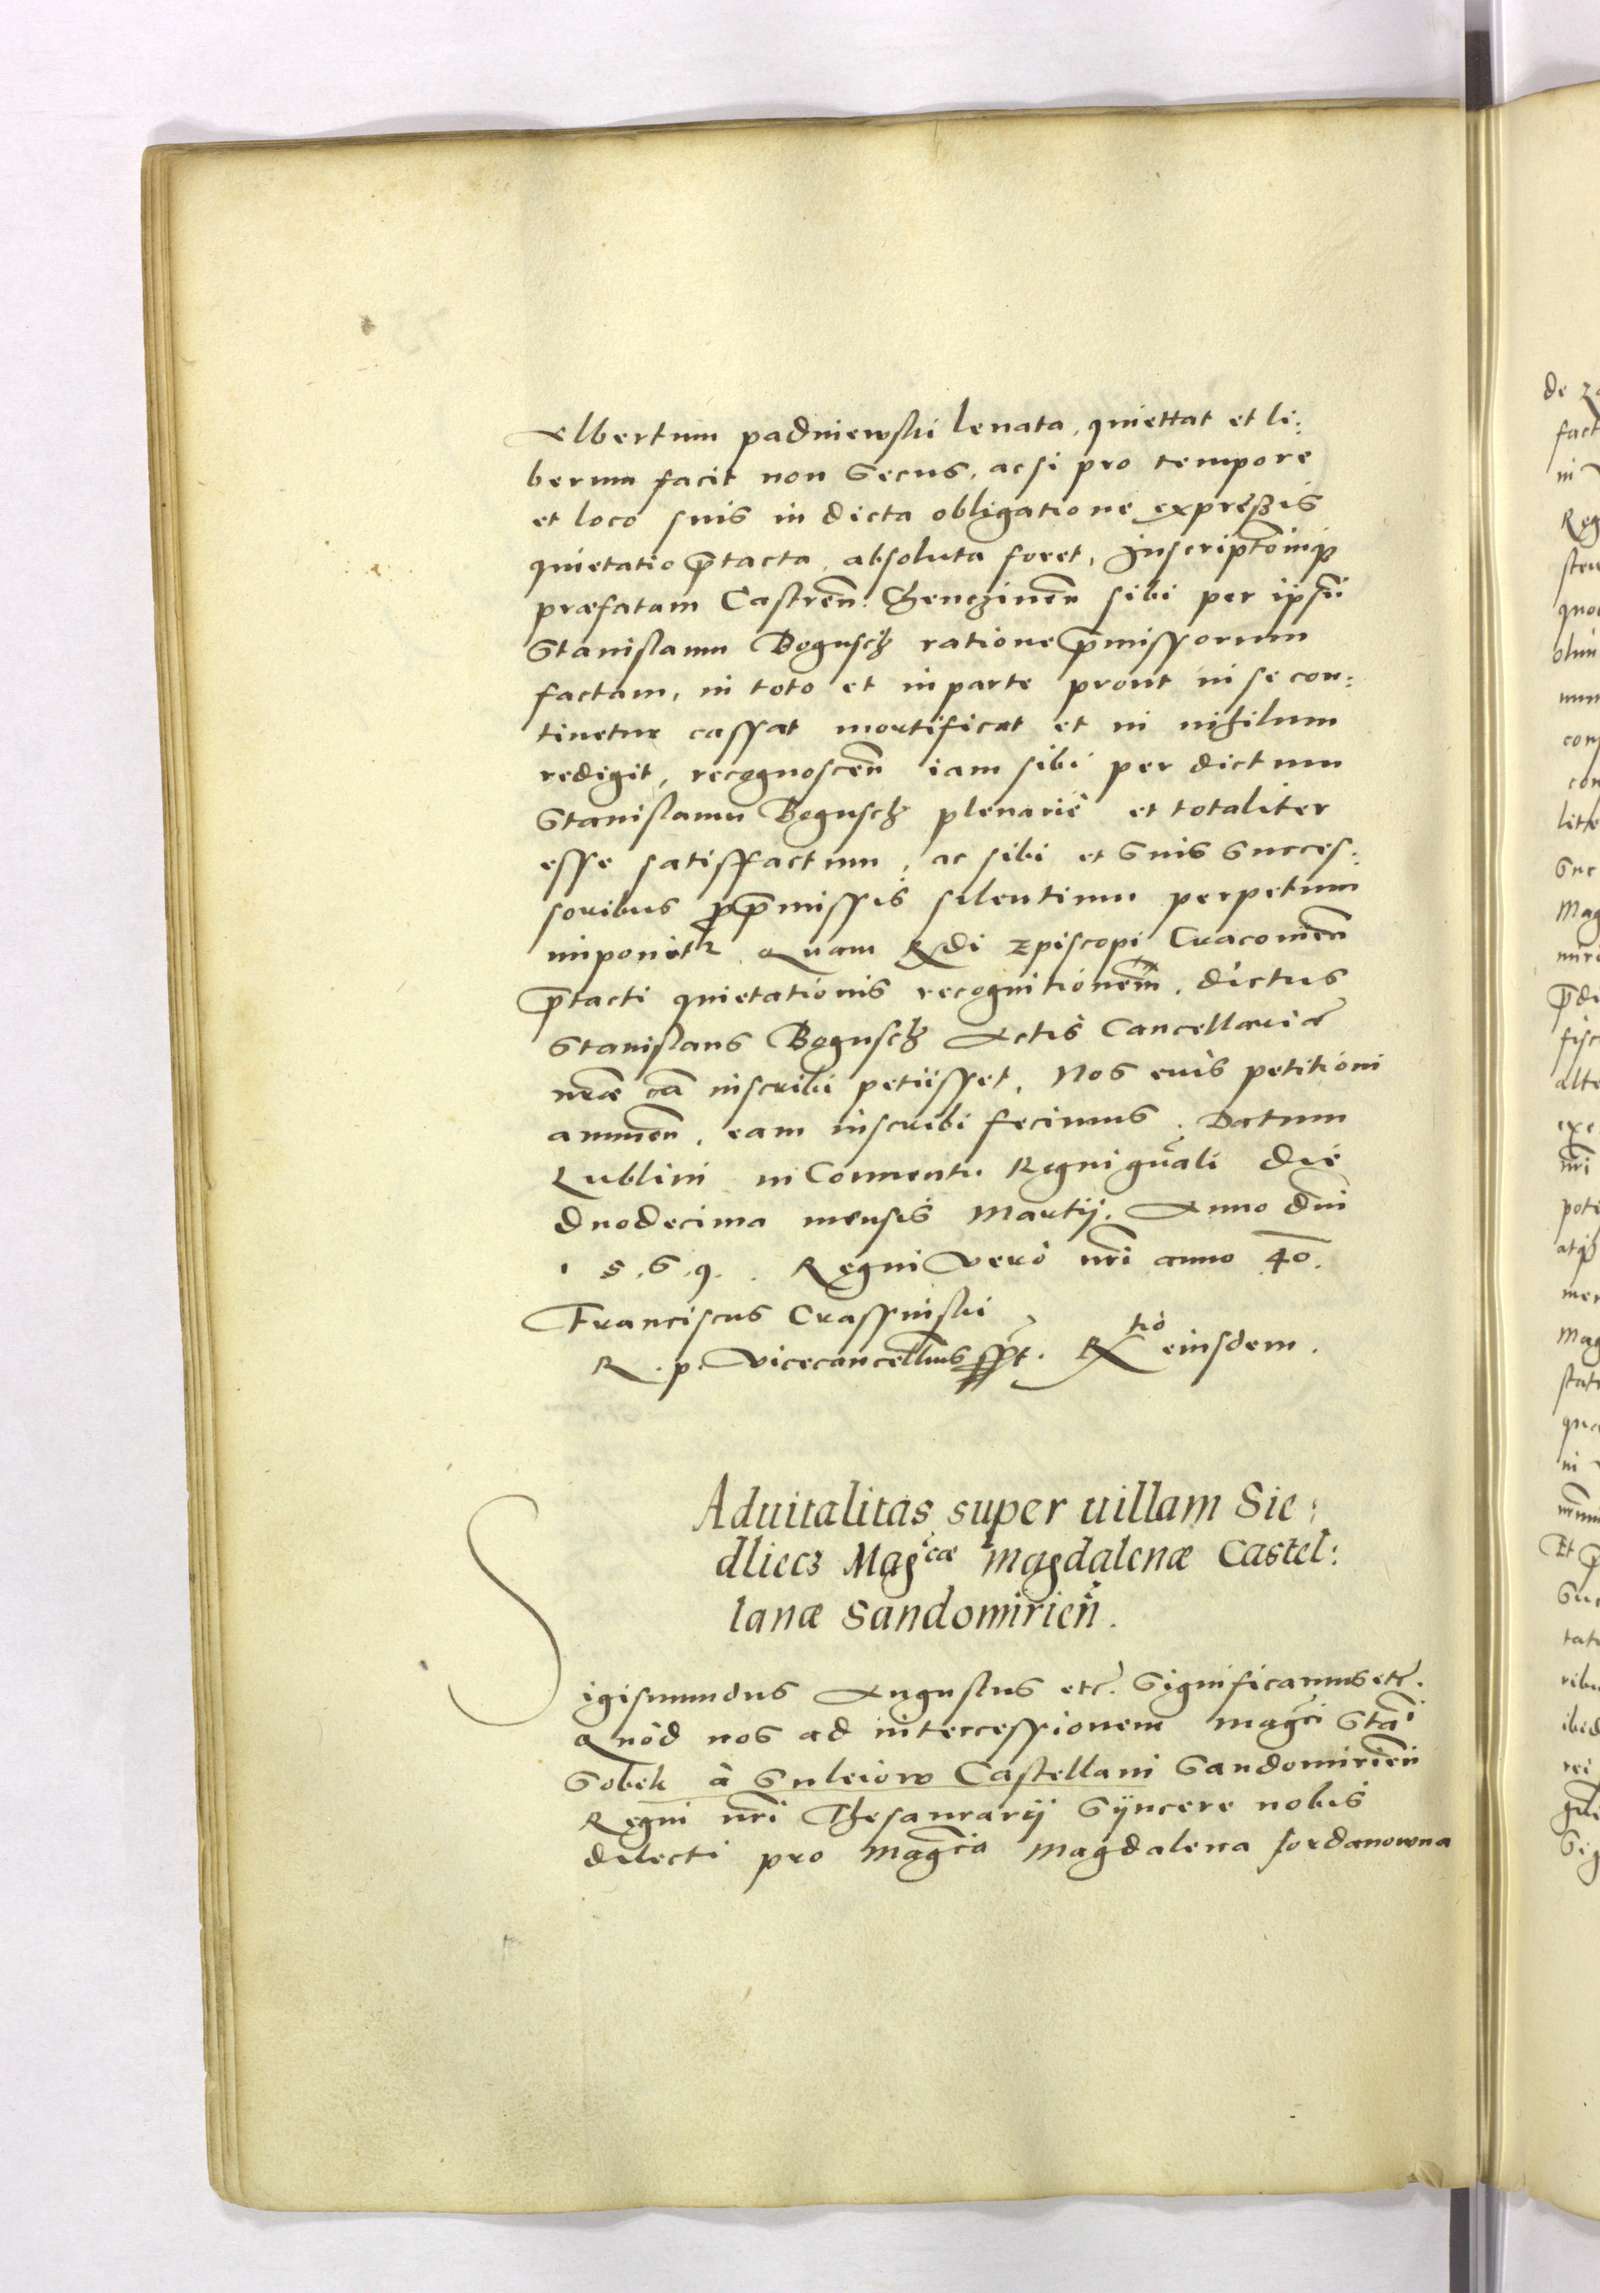 Albertum padniewski leuata, quiettat et li:
berum facit non Secus, acsi pro tempore
et loco suis in dicta obligatione expressis
quietatio p̄tacta, absoluta foret, Inscriptōnq̃
præfatam Castren̄. Genezinen̄ sibi per ipsū
Stanislaum Bogusch ratione p̄missorum
factam, in toto et in parte prout in se con:
tinetur cassat mortificat et in nihilum
redigit, recognoscen̄ iam sibi per dictum
Stanislaum Bogusch plenariè et totaliter
esse satisffactum, ac sibi et Suis Succes:
soribus pro p̄missis silentium perpetuum
imponit. Quam Rx̄di Episcopi Cracouien̄
p̄tacti quietationis recognitionem, dictus
Stanislaus Bogusch Actis Cancellariæ
nr̄æ cā inscribi petiisset, Nos euis petitioni
annuen̄, eam inscribi fecimus. Datum
Lublini in Conuentu Regni gn̄ali die
duodecima mensis Martij. Anno dn̄i
1569. Regni Vero nr̄i anno 40.
Franciscus Crassinski
R. p. Vicecancellrius sspt. Rxtio eiusdem.
Aduitalitas super uillam Sie:
dliecz Magcæ Magdalenæ Castel:
lanæ Sandomirien̄.
Sigismundus Augustus etc. Significamus etc.
Quòd nos ad intercessionem magci Stāi
Sobek à Suleiow Castellani Sandomirien̄
Regni nr̄i Thesaurarij Syncere nobis
dilecti pro Magcia Magdalena Jordanowna
de
fact
in
Reg
quo
olim
con
con
litte
Suc
Mag
p̄di
fisc
alte
exe
nr̄i
poti
atq̃
mer
Mag
stat
qua
in
Et
Suc
tati
ribu
ibid
rei
Sig